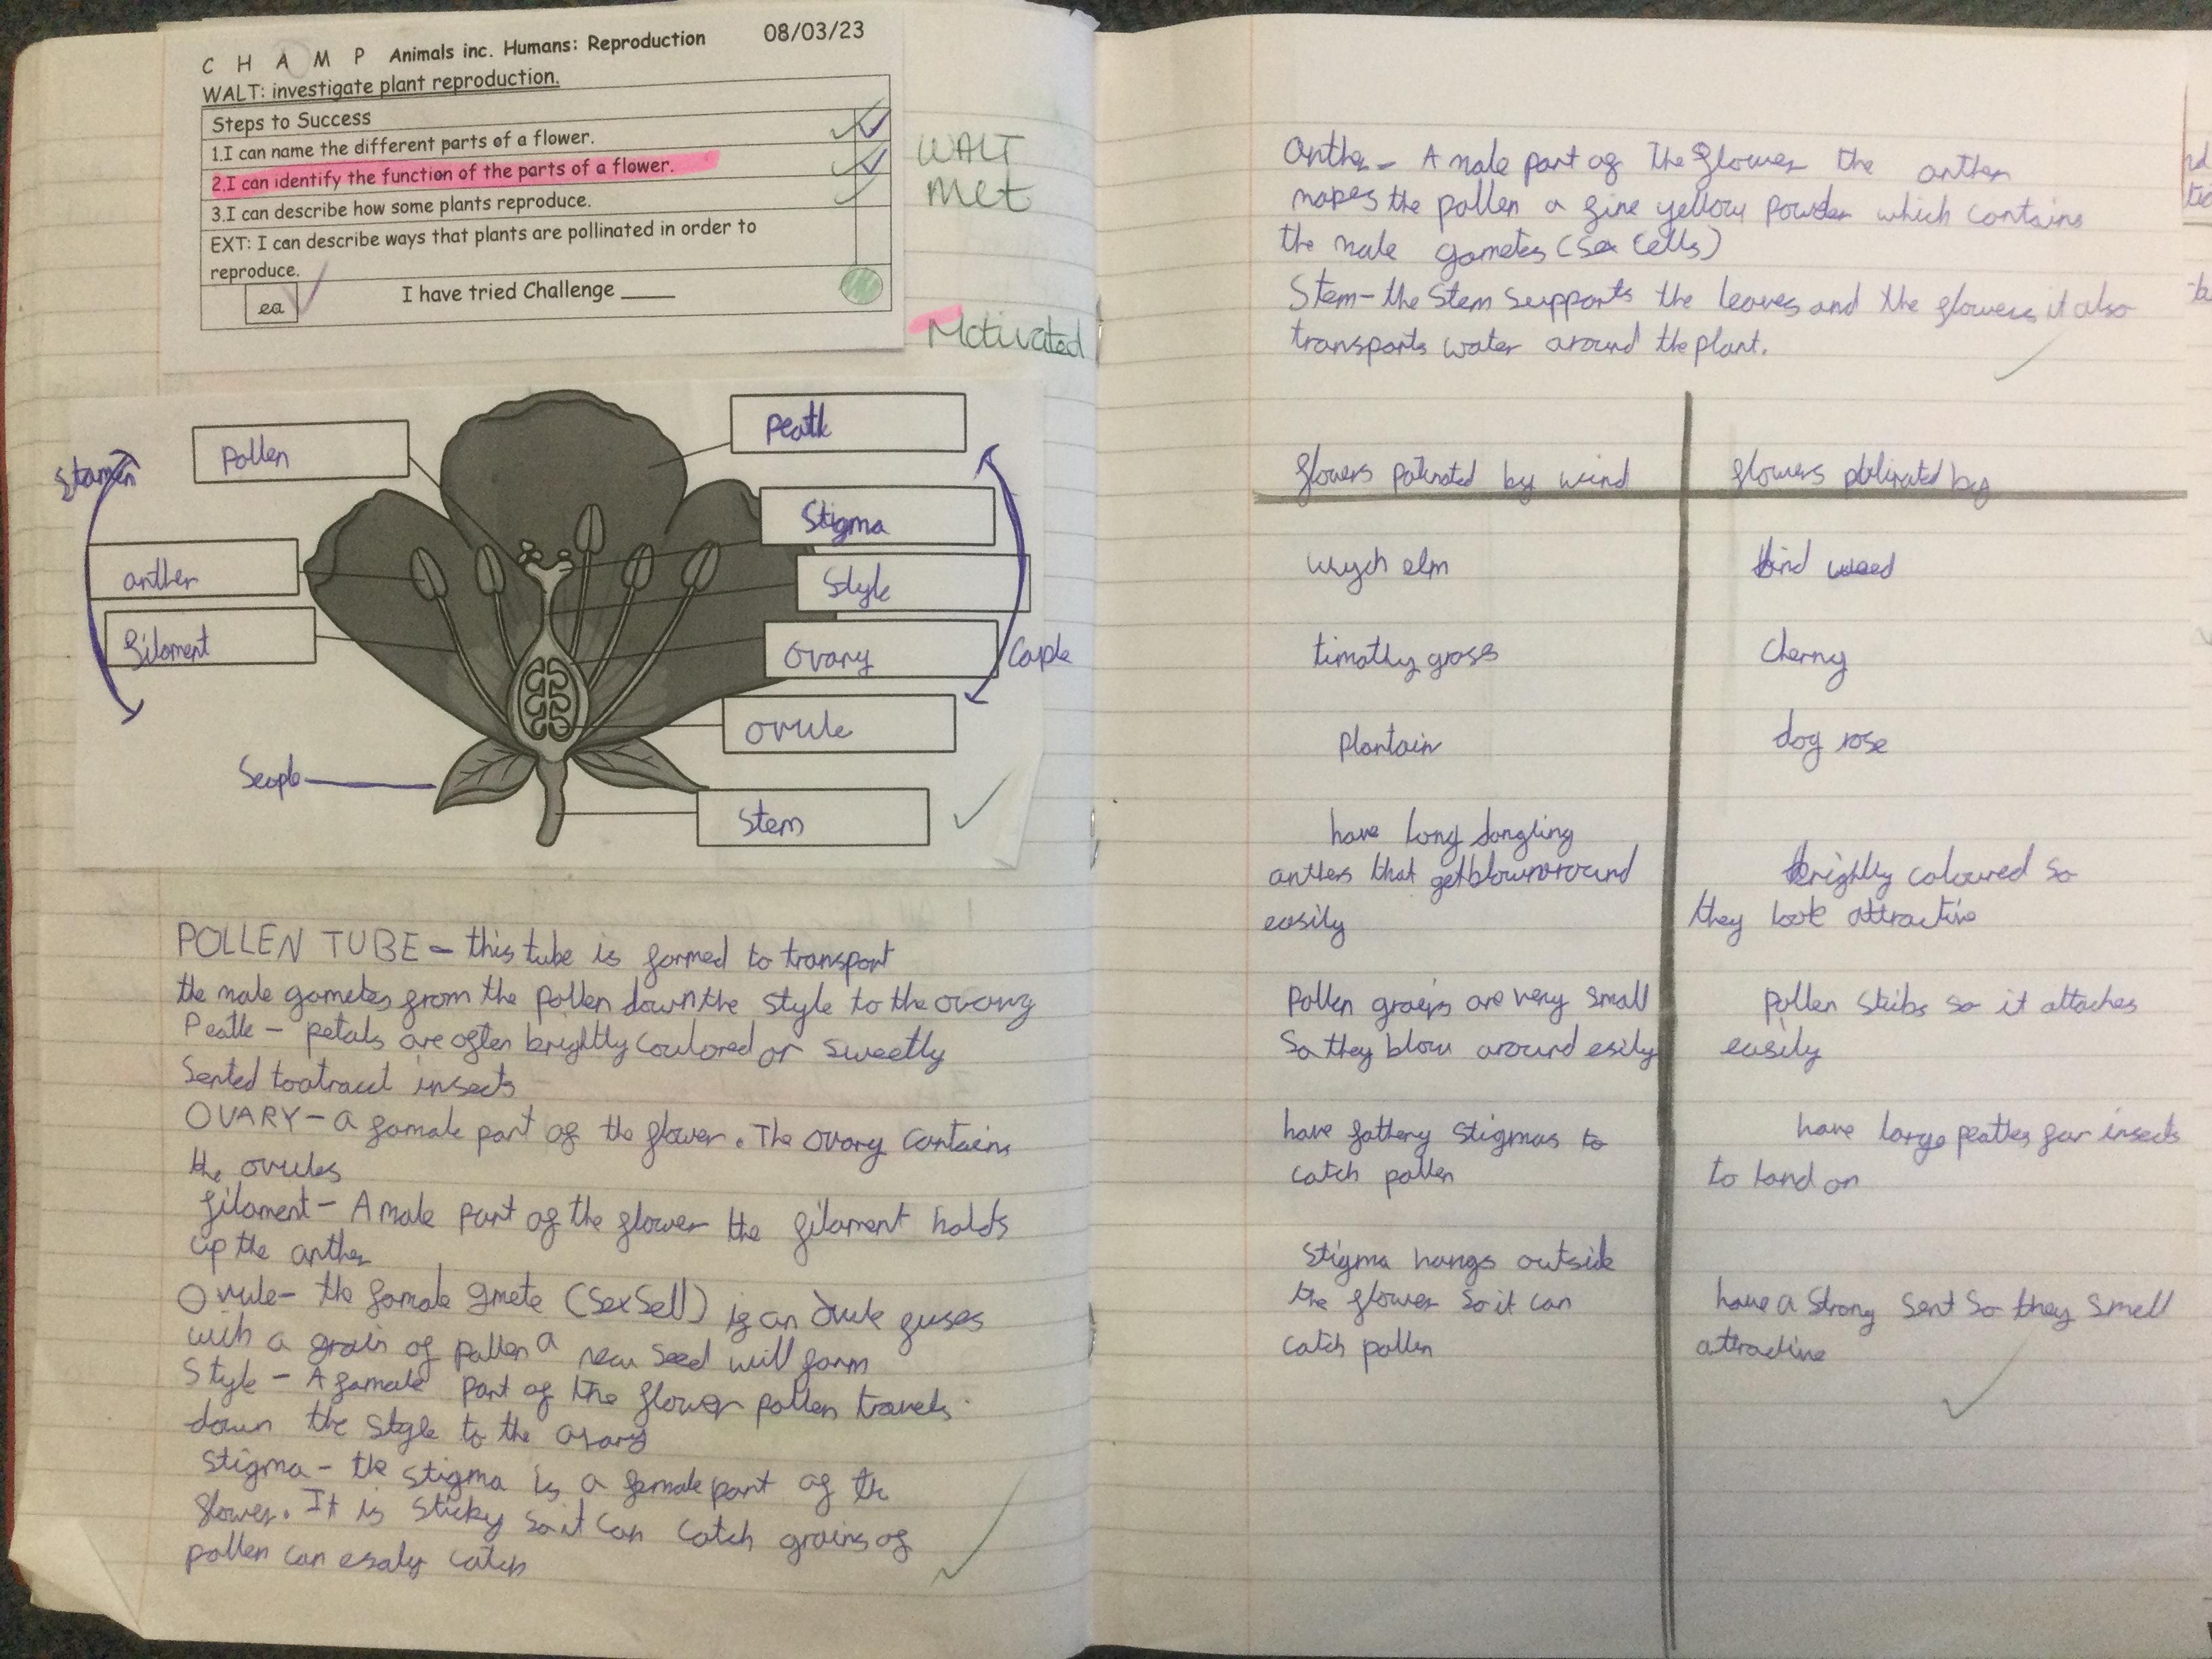 C H A M P Animals inc. Humans: Reproduction 08/03/23
WALT: investigate plant reproduction.
Steps to Success
1.I can name the different parts of a flower.
2.I can identify the function of the parts of a flower.
3.I can describe how some plants reproduce.
EXT: I can describe ways that plants are pollinated in order to
reproduce.
ea
I have tried Challenge ____
WALT
Met
Motivated
Stamen
Pollen
anther
filament
Seaple
Peatle
Stigma
Style
Ovary
Ovule
Stem
Caple
POLLEN TUBE - this tube is formed to transport
the male gametes from the pollen down the style to the ovary
Peatle - petals are often brightly coulored or sweetly
Sented to atract insects
OVARY - a famale part of the flower. The ovary contains
the ovules
filament - A male part of the flower the filament holds
up the anther
Ovule - the famale gmete (sex sell) if an ovule fuses
with a grain of pollen a new seed will form
Style - A famale part of the flower pollen travels
down the style to the ovary
Stigma - the stigma is a female part of the
flower. It is sticky so it can catch grains of
pollen can esaly catch
Anther - A male part of The flower the anther
makes the pollen a fine yellow powder which contains
the male gametes (sex cells)
Stem - the stem supports the leaves and the flowers it also
transports water around the plant.
flowers polinated by wind
flowers polinated by
wych elm
bind weed
timothy grass
cherry
plantain
dog rose
have long dangling
anthers that get blown around
easily
brightly coloured so
they look attractive
Pollen grains are very small
So they blow around esily
pollen stiks so it attaches
easily
have fathery stigmas to
catch pollen
have large peatles for insects
to land on
Stigma hangs outside
the flower so it can
catch pollen
have a strong sent so they smell
attractive